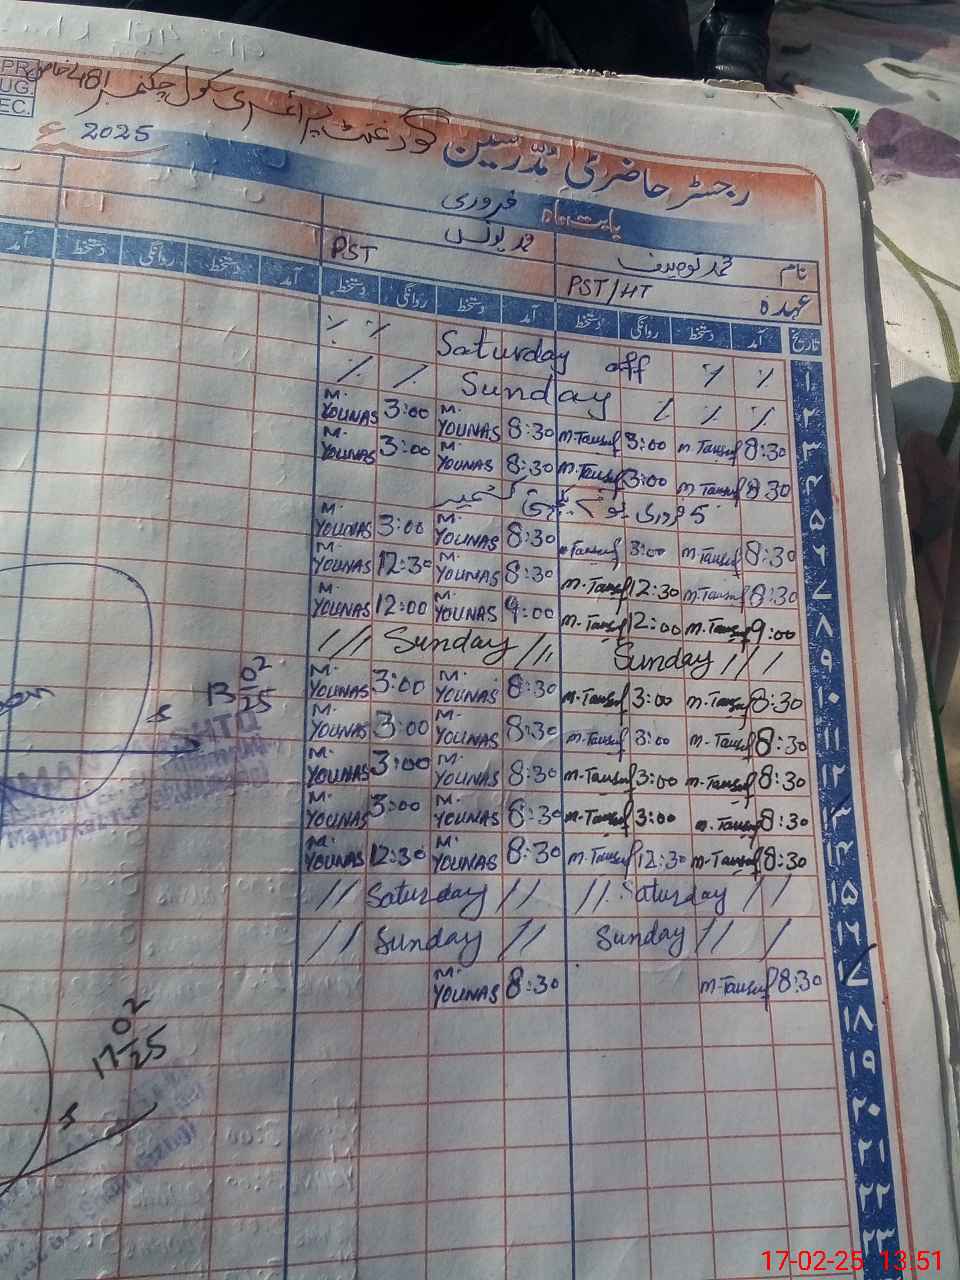 گورنمنٹ پرائمری سکول چکنمبر 481 خاص
PR
UG.
EC.
2025 ء
رجسٹر حاضری مدرسین
بابت ماہ فروری
نام محمد توصیف محمد یونس
عہدہ PST/HT PST
تاریخ آمد دستخط روانگی دستخط آمد دستخط روانگی دستخط آمد دستخط روانگی دستخط آمد
۱ ٪ ٪ Saturday off ٪ ٪
۲ ٪ ٪ ٪ Sunday ٪ ٪
۳ 8:30 M.Tausuf 3:00 M.Tausuf 8:30 M. YOUNAS 3:00 M. YOUNAS
۴ 8:30 M.Tausuf 3:00 M.Tausuf 8:30 M. YOUNAS 3:00 M. YOUNAS
۵ 5 فروری یوم یکجہتی کشمیر
۶ 8:30 M.Tausuf 3:00 M.Tausuf 8:30 M. YOUNAS 3:00 M. YOUNAS
۷ 8:30 M.Tausuf 12:30 M.Tausuf 8:30 M. YOUNAS 12:30 M. YOUNAS
۸ 9:00 M.Tausuf 12:00 M.Tausuf 9:00 M. YOUNAS 12:00 M. YOUNAS
۹ /// Sunday /// Sunday ///
۱۰ 8:30 M.Tausuf 3:00 M.Tausuf 8:30 M. YOUNAS 3:00 M. YOUNAS
۱۱ 8:30 M.Tausuf 3:00 M.Tausuf 8:30 M. YOUNAS 3:00 M. YOUNAS
۱۲ 8:30 M.Tausuf 3:00 M.Tausuf 8:30 M. YOUNAS 3:00 M. YOUNAS
۱۳ 8:30 M.Tausuf 3:00 M.Tausuf 8:30 M. YOUNAS 3:00 M. YOUNAS
۱۴ 8:30 M.Tausuf 12:30 M.Tausuf 8:30 M. YOUNAS 12:30 M. YOUNAS
۱۵ // Saturday // // Saturday //
۱۶ // Sunday // Sunday // /
۱۷ 8:30 M.Tausuf 8:30 M. YOUNAS
۱۸
۱۹
۲۰
۲۱
۲۲
۲۳
13 02/25
17 02/25
17-02-25 13:51